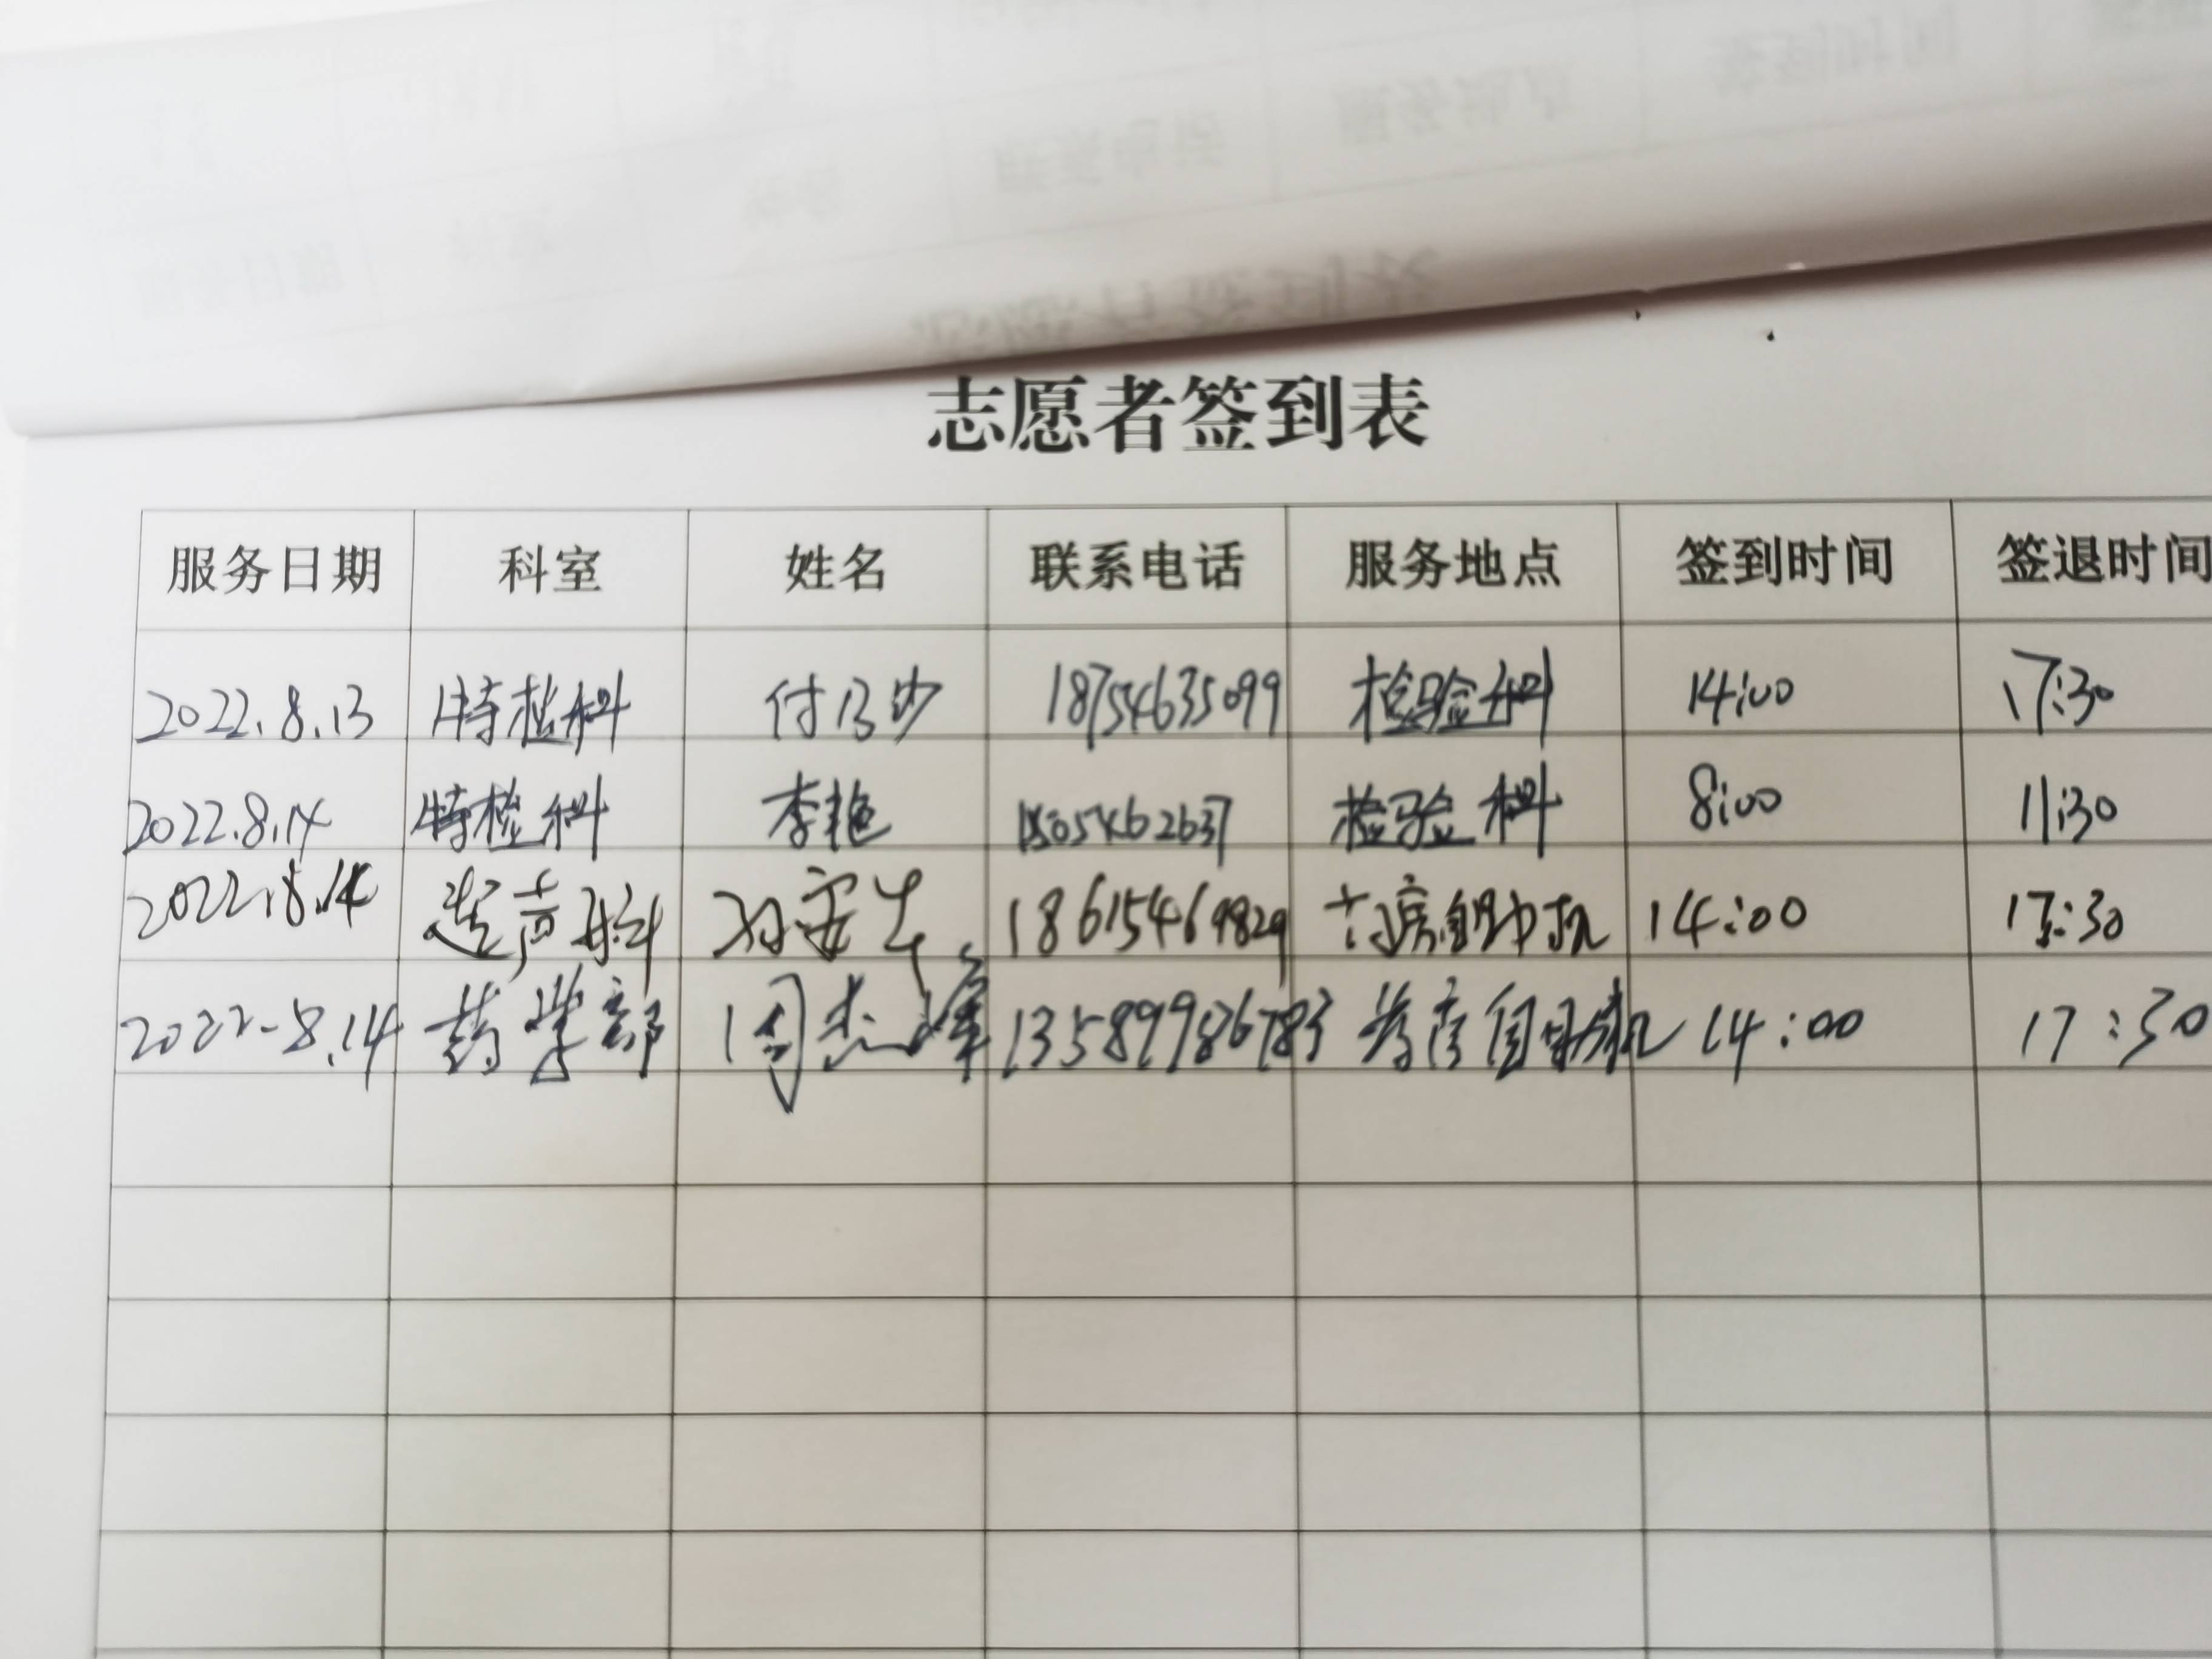 志愿者签到表
服务日期 科室 姓名 联系电话 服务地点 签到时间 签退时间
2022.8.13 特检科 付 18754635099 检验科 14:00 17:30
2022.8.14 特检科 李艳 检验科 8:00 11:30
2022.8.14 超声科 18615469829 14:00 17:30
2022-8.14 药学部 周志峰 13589986783 药房自助机 14:00 17:30